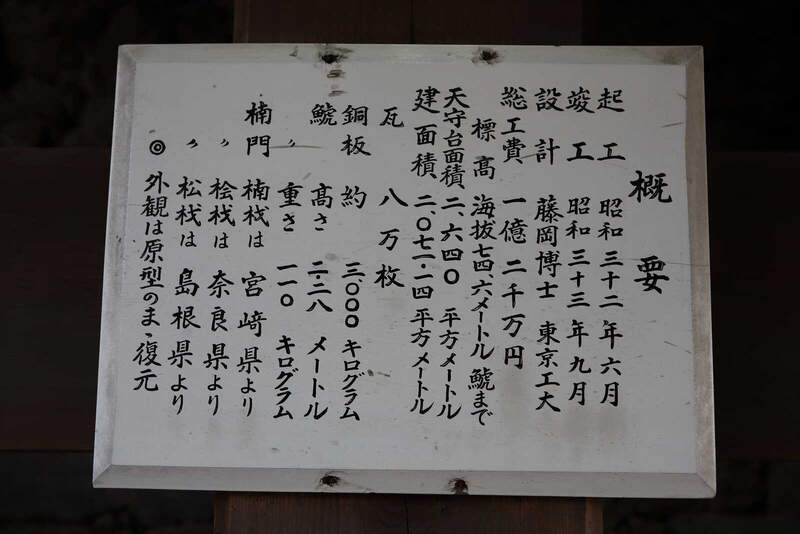 概要
起工 昭和三十二年六月
竣工 昭和三十三年九月
設計 藤岡博士 東京工大
総工費 一億二千万円
標高 海抜七四.六メートル 鯱まで
天守台面積 二、六四〇 平方メートル
建面積 二、〇七一・一四 平方メートル
瓦 八万枚
銅板 約 三、〇〇〇 キログラム
鯱 高さ 二・二八 メートル
〃 重さ 一一〇 キログラム
楠門 楠材は 宮崎県より
〃 桧材は 奈良県より
〃 松材は 島根県より
◎ 外観は原型のまゝ復元